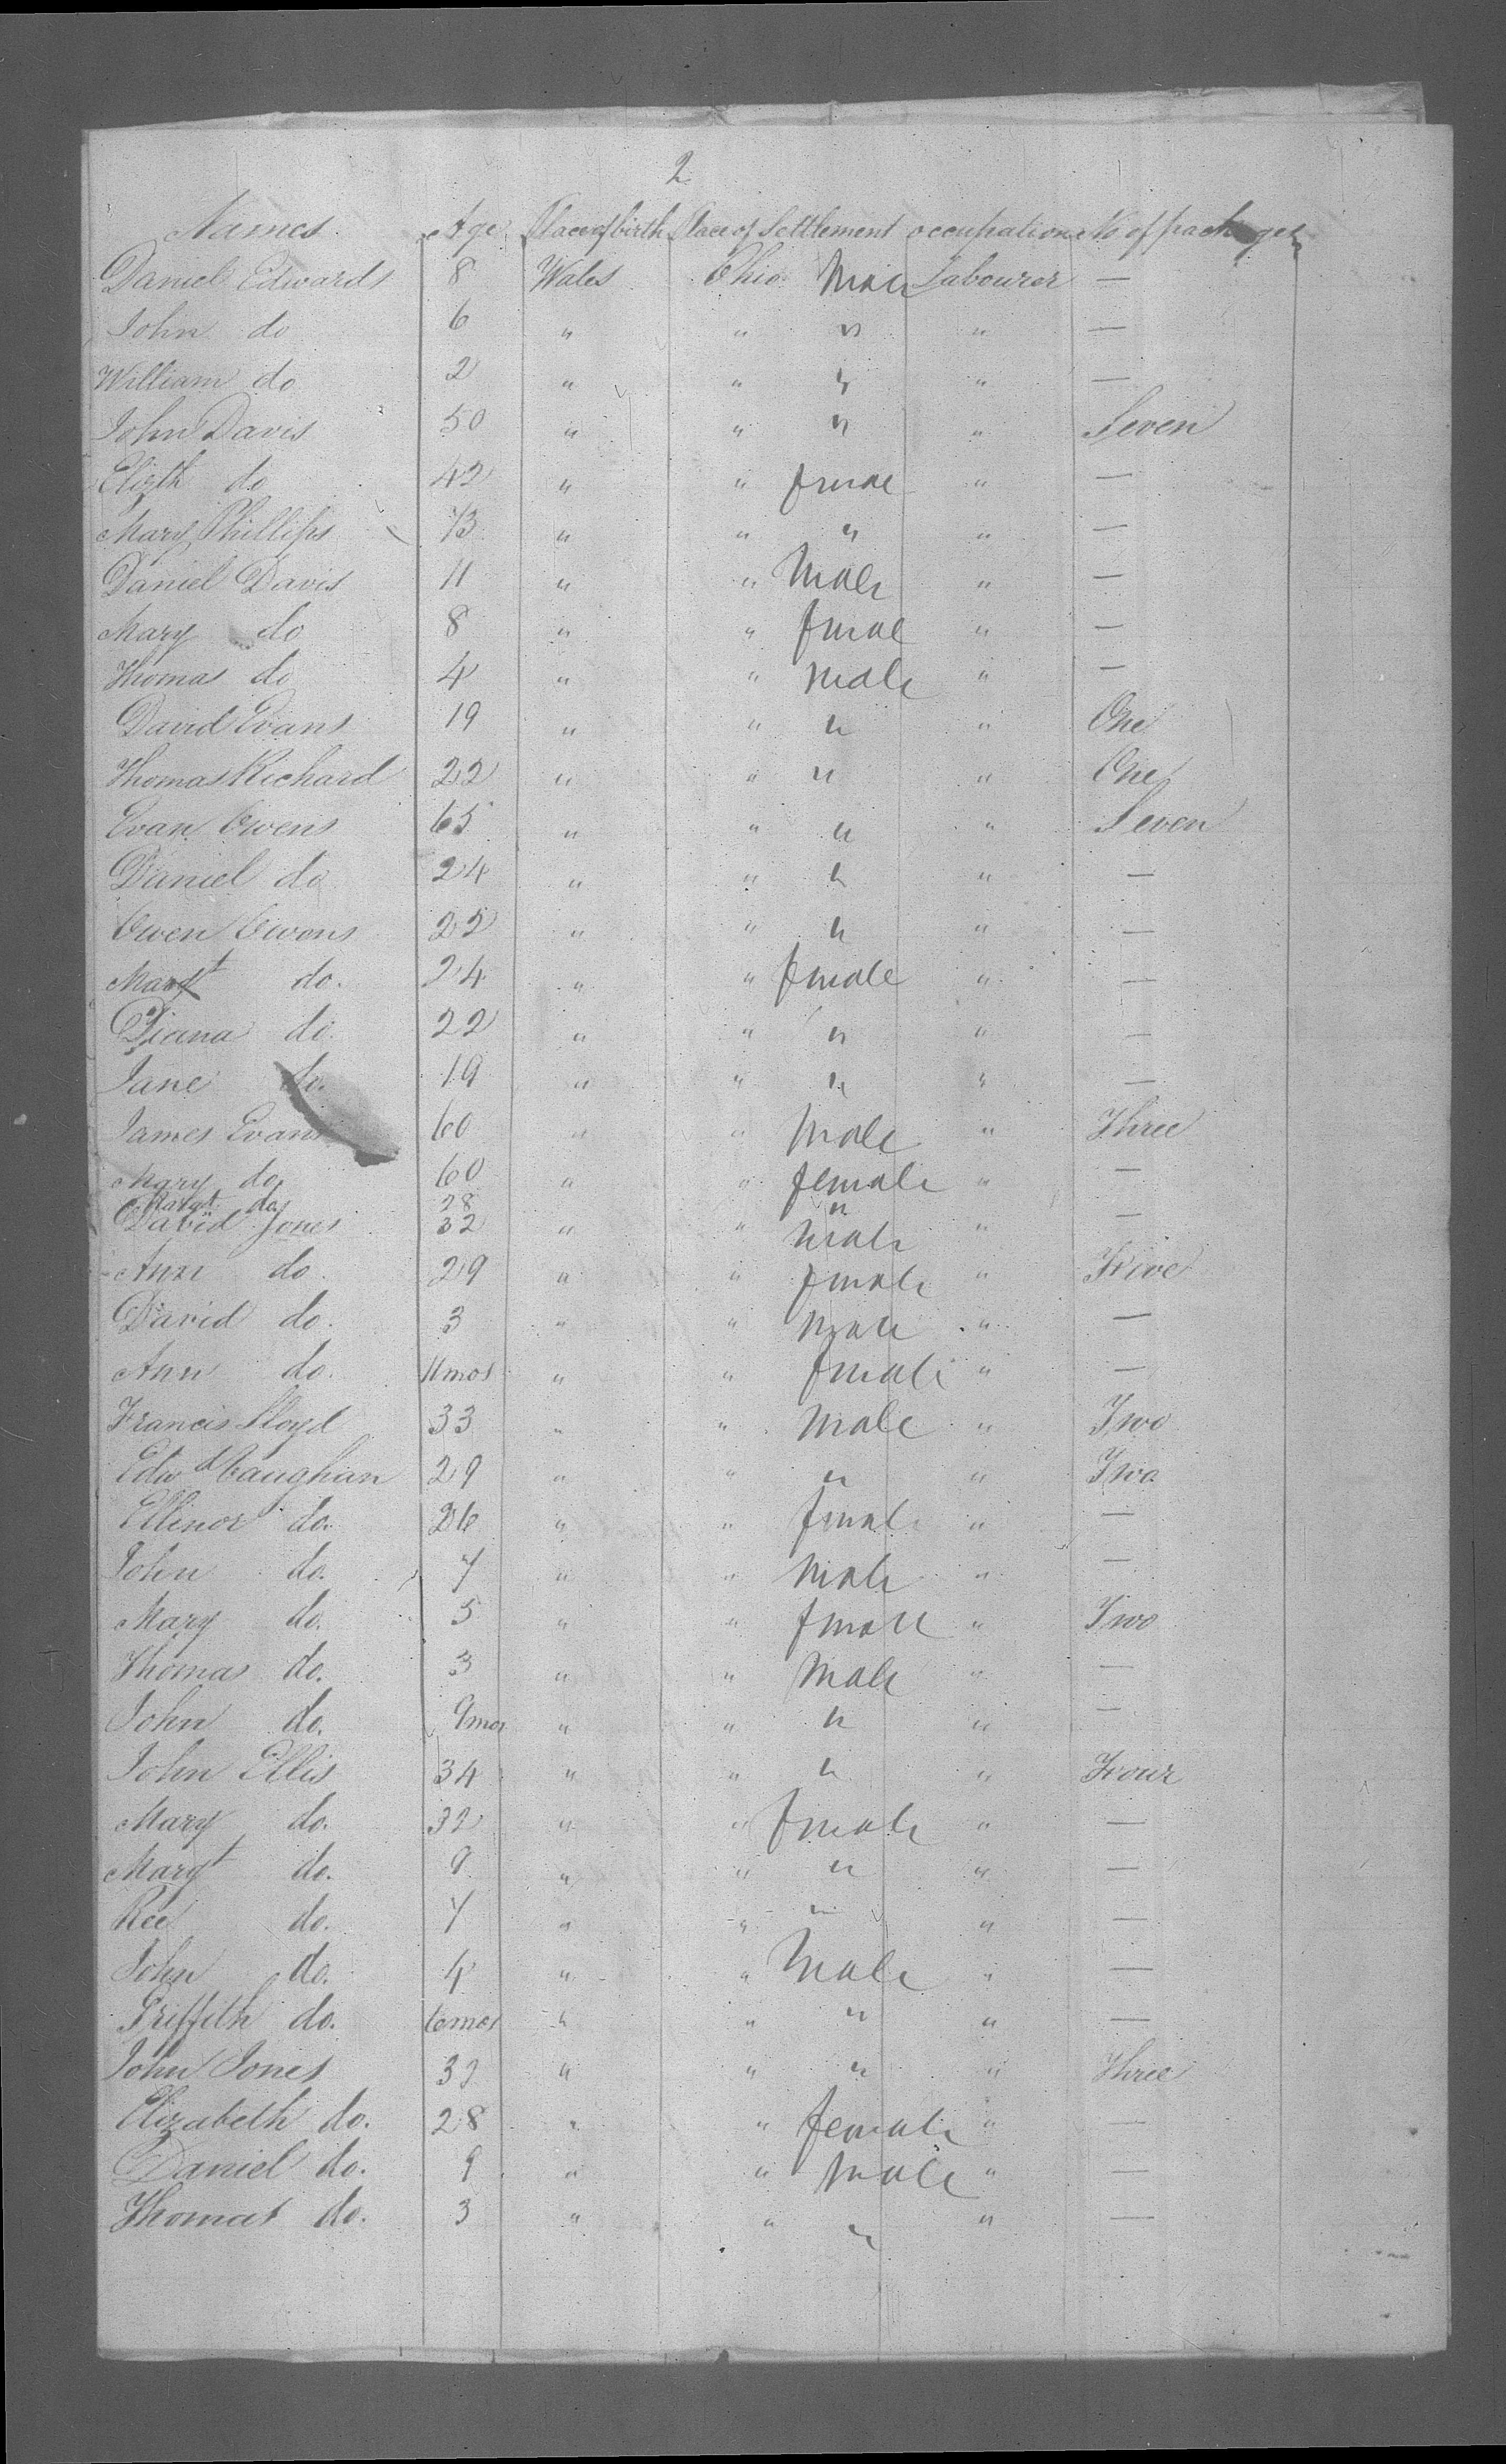 2
Names Age Place of birth Place of Settlement occupation No of packages
Daniel Edwards 8 Wales Ohio Male Labourer —
John do 6 " " " " —
William do 2 " " " " —
John Davis 50 " " " " Seven
Elizth do 42 " " female " —
Mary Phillips 13 " " " " —
Daniel Davis 11 " " Male " —
Mary do 8 " " female " —
Thomas do 4 " " male " —
David Evans 19 " " " " One
Thomas Richard 22 " " " " One
Evan Owens 65 " " " " Seven
Daniel do 24 " " " " —
Owen Owens 22 " " " " —
Margt do. 24 " " female " —
Diana do. 22 " " " " —
Jane do. 19 " " " " —
James Evans 60 " " Male " Three
Mary do. 60 " " female " —
Margt do. 28 "
David Jones 32 " " male " —
Ann do. 29 " " female " Five
David do. 3 " " male " —
Ann do. 11 mos " " female " —
Francis Lloyd 33 " " Male " Two
Edwd Vaughan 29 " " " " Two
Ellinor do. 26 " " female " —
John do. 7 " " male " —
Mary do. 5 " " female " Two
Thomas do. 3 " " Male " —
John do. 9 mos " " " " —
John Ellis 34 " " " " Four
Mary do. 32 " " female " —
Margt do. 9 " " " " —
Ree do. 7 " " " " —
John do. 4 " " Male " —
Griffith do. 6 mos " " " " —
John Jones 32 " " " " Three
Elizabeth do. 28 " " female " —
Daniel do. 9 " " male " —
Thomas do. 3 " " " " —